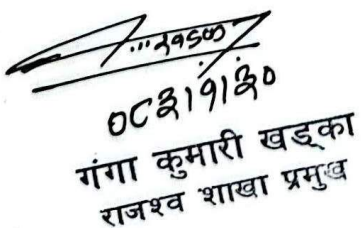 ०८३।१।३०
गंगा कुमारी खड्का
राजश्व शाखा प्रमुख